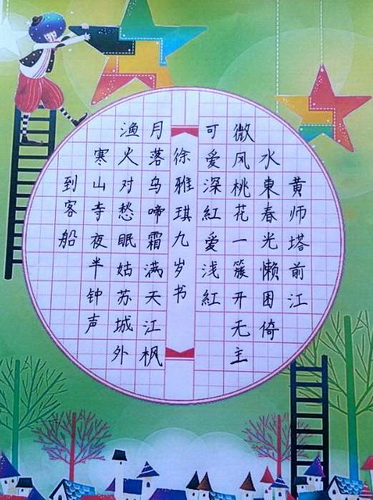 黄师塔前江
水東春光懒困倚
微风桃花一簇开无主
可爱深紅爱浅紅
徐雅琪九岁书
月落乌啼霜满天江枫
渔火对愁眠姑苏城外
寒山寺夜半钟声
到客船